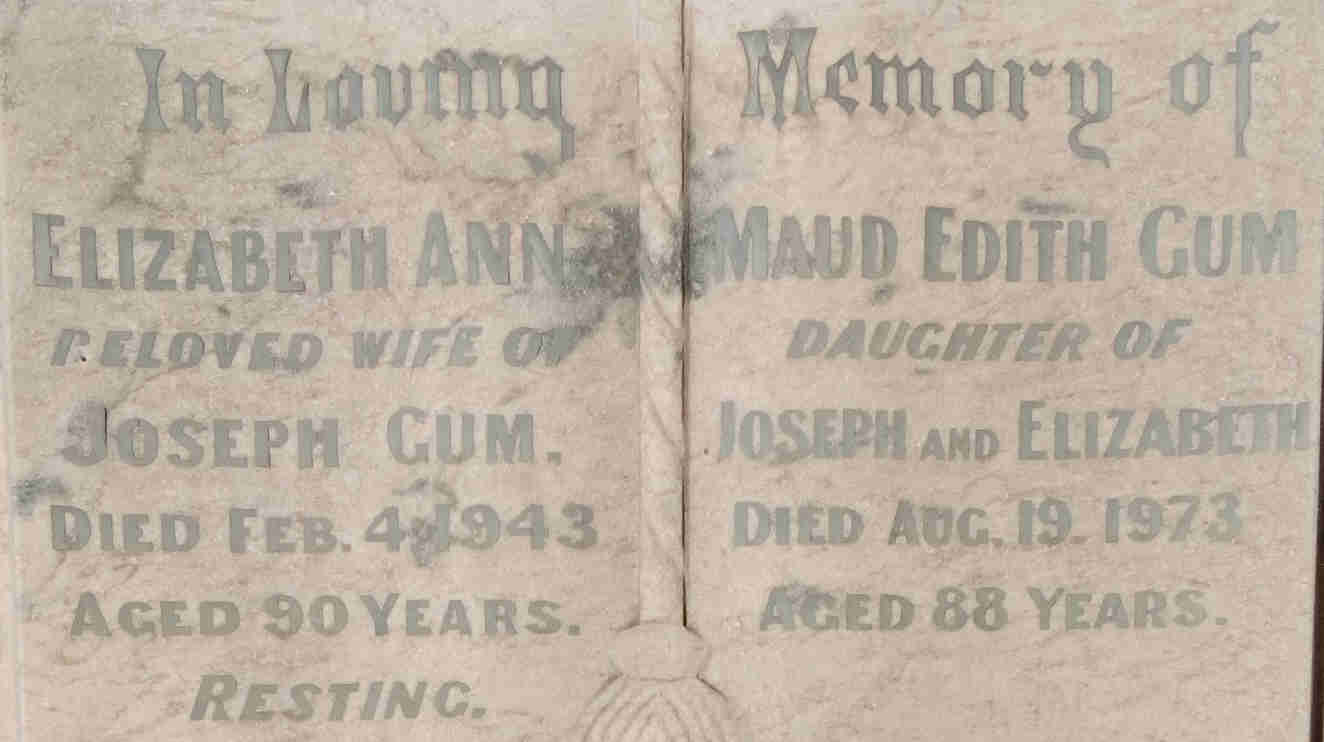 In Loving Memory of
ELIZABETH ANN
BELOVED WIFE OF
JOSEPH GUM.
DIED FEB. 4, 1943
AGED 90 YEARS.
RESTING.
MAUD EDITH GUM
DAUGHTER OF
JOSEPH AND ELIZABETH
DIED AUG. 19. 1973
AGED 88 YEARS.